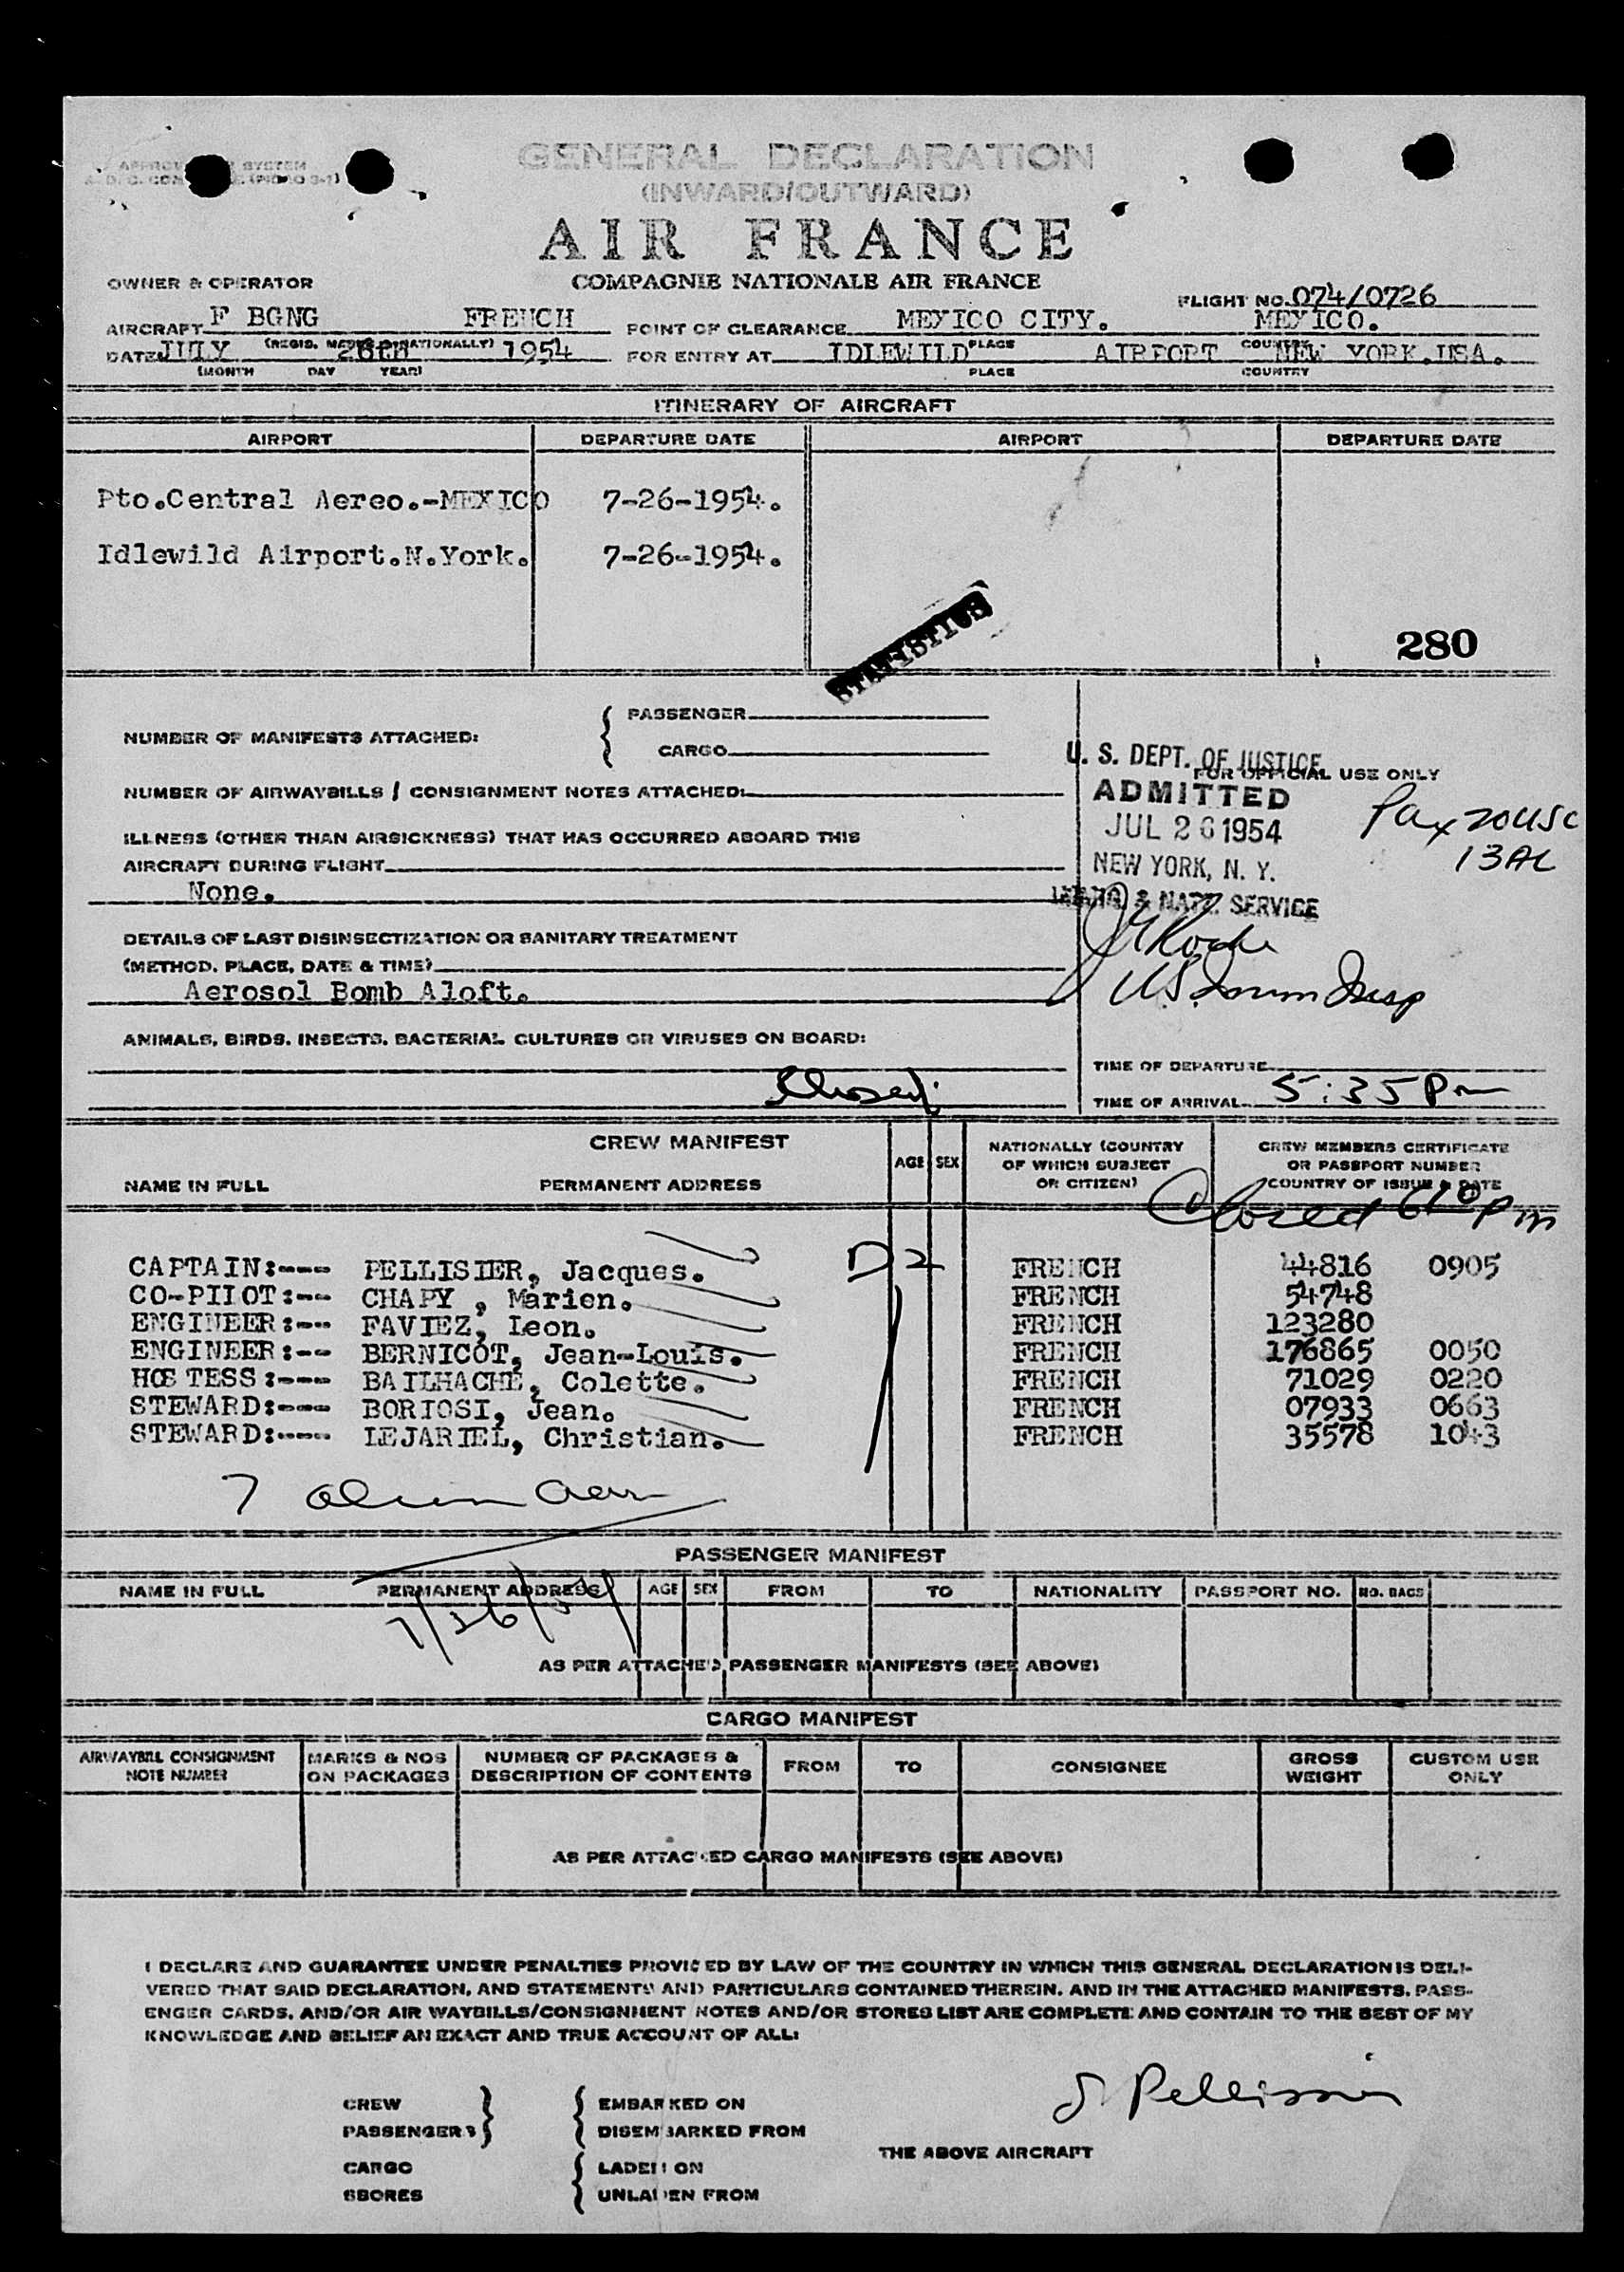 GENERAL DECLARATION
(INWARD/OUTWARD)
AIR FRANCE
COMPAGNIE NATIONALE AIR FRANCE
OWNER & OPERATOR
FLIGHT NO. 074/0726
AIRCRAFT F BGNG FRENCH POINT OF CLEARANCE MEXICO CITY. MEXICO.
DATE JULY 26th 1954 FOR ENTRY AT IDLEWILD AIRPORT NEW YORK.USA.
(MONTH DAY YEAR) PLACE COUNTRY
ITINERARY OF AIRCRAFT
AIRPORT DEPARTURE DATE AIRPORT DEPARTURE DATE
Pto.Central Aereo.-MEXICO 7-26-1954.
Idlewild Airport.N.York. 7-26-1954.
STATISTICS
280
NUMBER OF MANIFESTS ATTACHED: { PASSENGER
CARGO
NUMBER OF AIRWAYBILLS / CONSIGNMENT NOTES ATTACHED:
ILLNESS (OTHER THAN AIRSICKNESS) THAT HAS OCCURRED ABOARD THIS
AIRCRAFT DURING FLIGHT
None.
DETAILS OF LAST DISINSECTIZATION OR SANITARY TREATMENT
(METHOD, PLACE, DATE & TIME)
Aerosol Bomb Aloft.
ANIMALS, BIRDS, INSECTS, BACTERIAL CULTURES OR VIRUSES ON BOARD:
U. S. DEPT. OF JUSTICE
FOR OFFICIAL USE ONLY
ADMITTED
JUL 26 1954
NEW YORK, N. Y.
IMMIG. & NATZ. SERVICE
Pax 20 USC
13 AL
U.S. Imm Insp
TIME OF DEPARTURE
TIME OF ARRIVAL 5:35 Pm
CREW MANIFEST
NAME IN FULL PERMANENT ADDRESS AGE SEX
NATIONALLY (COUNTRY
OF WHICH SUBJECT
OR CITIZEN)
CREW MEMBERS CERTIFICATE
OR PASSPORT NUMBER
COUNTRY OF ISSUE & DATE
Closed 6 10 Pm
CAPTAIN:--- PELLISIER, Jacques. D2 FRENCH 44816 0905
CO-PILOT:-- CHAPY , Marien. FRENCH 54748
ENGINEER:-- FAVIEZ, Leon. FRENCH 123280
ENGINEER:-- BERNICOT, Jean-Louis. FRENCH 176865 0050
HOSTESS:--- BAILHACHE, Colette. FRENCH 71029 0220
STEWARD:--- BORIOSI, Jean. FRENCH 07933 0663
STEWARD:---- LEJARIEL, Christian. FRENCH 35578 1043
7
PASSENGER MANIFEST
NAME IN FULL PERMANENT ADDRESS AGE SEX FROM TO NATIONALITY PASSPORT NO. NO. BAGS
7/26/54
AS PER ATTACHED PASSENGER MANIFESTS (SEE ABOVE)
CARGO MANIFEST
AIRWAYBILL CONSIGNMENT
NOTE NUMBER
MARKS & NOS
ON PACKAGES
NUMBER OF PACKAGES &
DESCRIPTION OF CONTENTS
FROM TO CONSIGNEE
GROSS
WEIGHT
CUSTOM USE
ONLY
AS PER ATTACHED CARGO MANIFESTS (SEE ABOVE)
I DECLARE AND GUARANTEE UNDER PENALTIES PROVIDED BY LAW OF THE COUNTRY IN WHICH THIS GENERAL DECLARATION IS DELI-
VERED THAT SAID DECLARATION, AND STATEMENTS AND PARTICULARS CONTAINED THEREIN, AND IN THE ATTACHED MANIFESTS, PASS-
ENGER CARDS, AND/OR AIR WAYBILLS/CONSIGNMENT NOTES AND/OR STORES LIST ARE COMPLETE AND CONTAIN TO THE BEST OF MY
KNOWLEDGE AND BELIEF AN EXACT AND TRUE ACCOUNT OF ALL:
J. Pellissier
CREW } { EMBARKED ON
PASSENGERS DISEMBARKED FROM
THE ABOVE AIRCRAFT
CARGO { LADEN ON
SBORES UNLADEN FROM